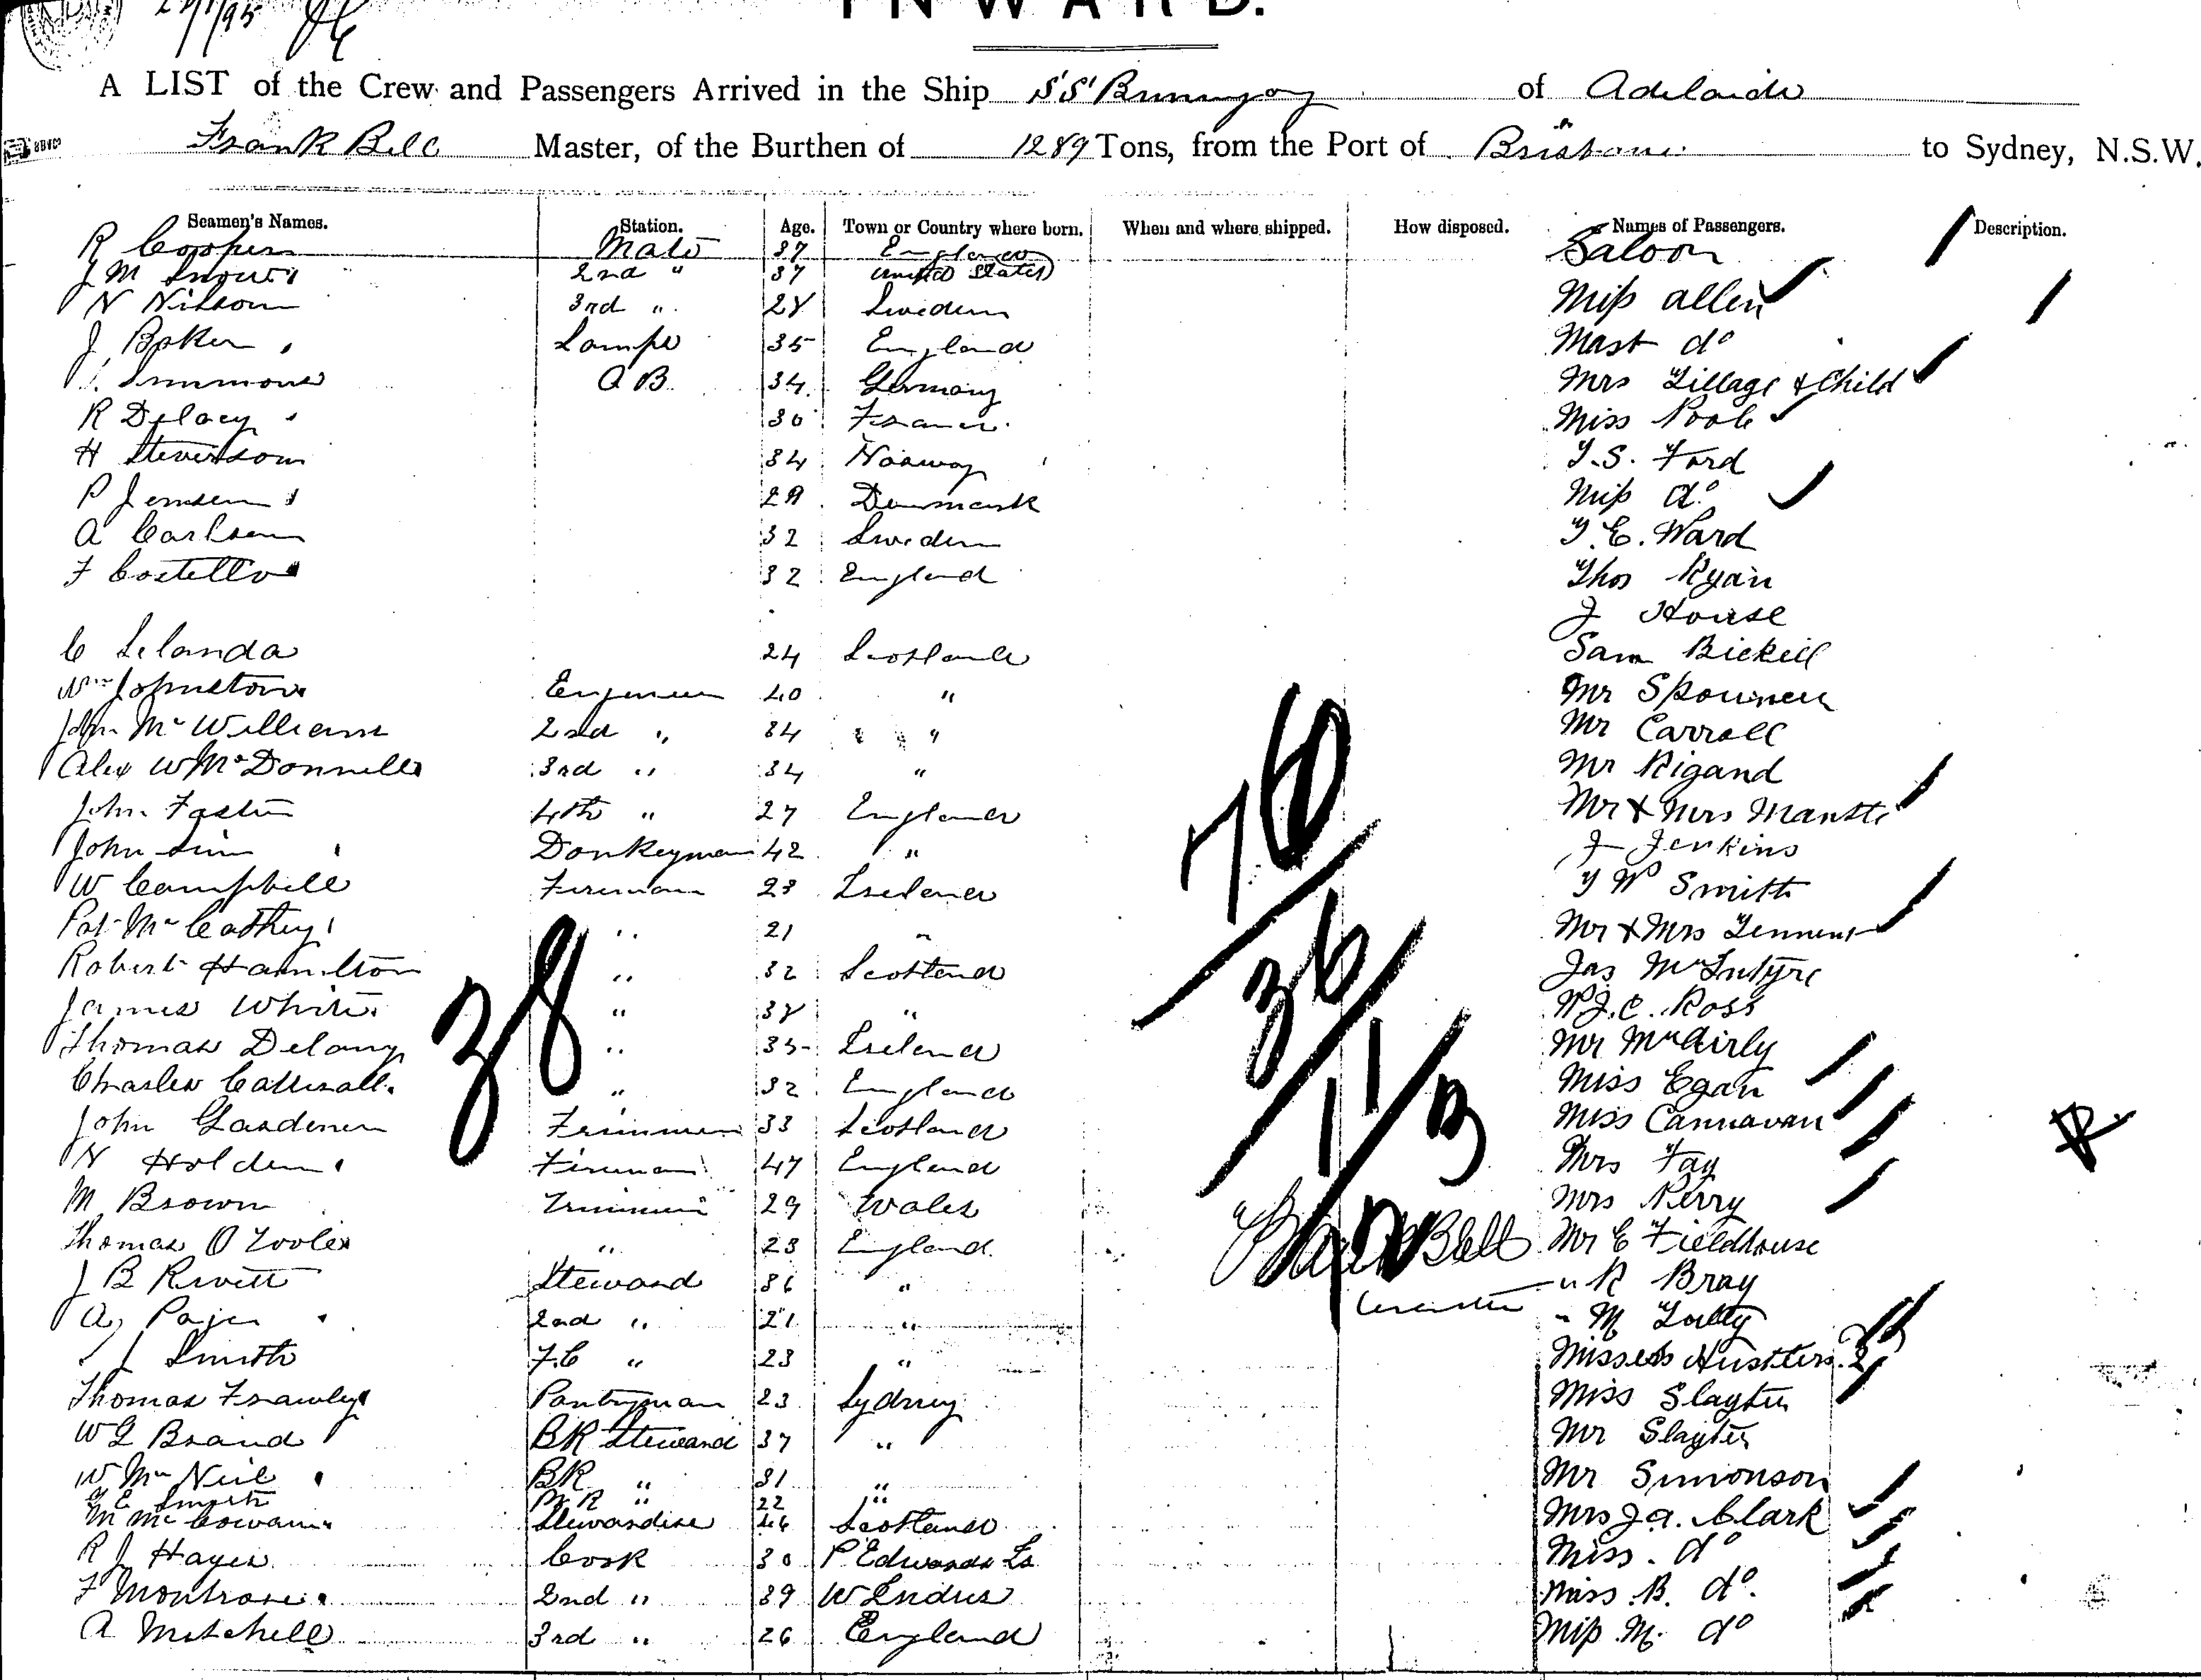 INWARD.
A LIST of the Crew and Passengers Arrived in the Ship SS Bunnyong of Adelaide
Frank Bell Master, of the Burthen of 1289 Tons, from the Port of Brisbane to Sydney, N.S.W.
Seamen's Names. Station. Age. Town or Country where born. When and where shipped. How disposed. Names of Passengers. Description.
R Cooper Mate 37 England Saloon
J M 2nd " 37 United States
N Nilson 3rd " 28 Sweden Miss Allen
J Baker Lamps 35 England Mast do
Simmons A B 34 Germany Mrs Tillage & Child
R Delacy 30 France Miss Poole
H Stevenson 34 Norway T.S. Ford
P Jensen 29 Denmark Miss do
A Carlsen 32 Sweden T.E. Ward
F Costello 32 England Thos Ryan
J House
C Lelanda 24 Scotland Sam Bickell
Wm Johnston Engineer 40 " Mr
John Mc William 2nd " 34 " Mr Carroll
Alex W McDonnell 3rd " 34 " Mr Rigand
John Foster 4th " 27 England Mr & Mrs
John Sim Donkeyman 42 " J Jenkins
W Campbell Fireman 23 Ireland T W Smith
Pat Mc Cathey " 21 " Mr & Mrs Tennent
Robert Hamilton " 32 Scotland Jas McIntyre
James White " 38 " W.J.C. Ross
Thomas Delany " 35 Ireland Mr McAirly
Charles Catterall " 32 England Miss Egan
John Gardener Trimmer 33 Scotland Miss Cannavan
N Holden Fireman 47 England Mrs Fay
M Brown Trimmer 29 Wales Mrs Perry
Thomas O Toole " 23 England Mr E Fieldhouse
J B Rivett Steward 36 " " R Bray
A Page 2nd " 21 " " M
J Smith F.C " 23 " Misses Hustlers 2
Thomas Frawley Pantryman 23 Sydney Miss Slayter
W G Brand BR Steward 37 " Mr Slayter
W Mc Neil BR " 31 " Mr Simonson
E Smith " 22 "
M Mc Cowan Stewardess 46 Scotland Mrs J.A. Clark
R J Hayes Cook 30 P. Edwards Is Miss do
F Montrose 2nd " 39 W Indies Miss B. do
A Mitchell 3rd " 26 England Miss M. do
38
76
36
11
3
Frank Bell